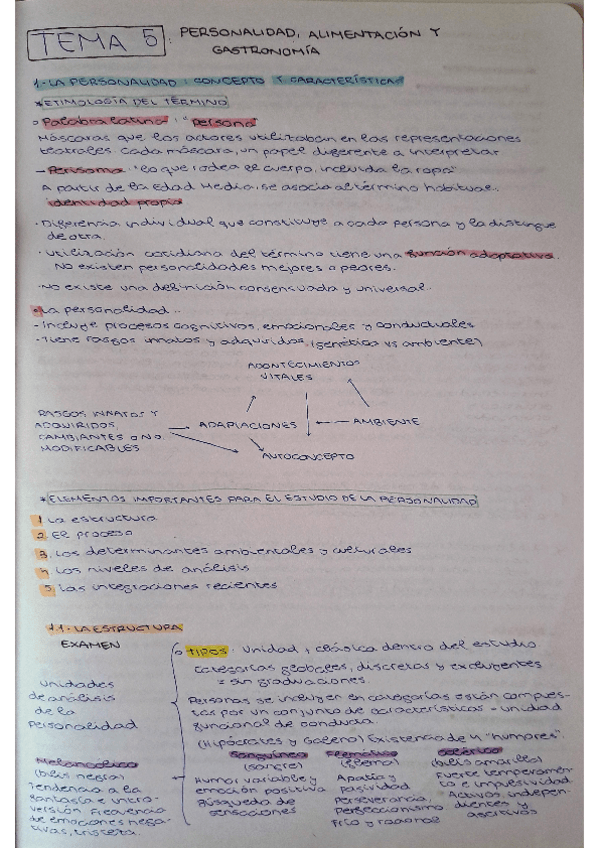 TEMA 5: PERSONALIDAD, ALIMENTACIÓN Y
GASTRONOMÍA
1.- LA PERSONALIDAD: CONCEPTO Y CARACTERÍSTICAS
*ETIMOLOGÍA DEL TÉRMINO
Palabra latina: "Persona"
Máscaras que los actores utilizaban en las representaciones
teatrales. Cada máscara, un papel diferente a interpretar
- Perisoma: "lo que rodea el cuerpo, incluida la ropa"
A partir de la Edad Media, se asocia al término habitual..
identidad propia
· Diferencia individual que constituye a cada persona y la distingue
de otra.
· Utilización cotidiana del término tiene una función adaptativa.
No existen personalidades mejores o peores.
· No existe una definición consensuada y universal.
La personalidad..
- Incluye procesos cognitivos, emocionales y conductuales
- Tiene rasgos innatos y adquiridos (genética vs ambiente)
ACONTECIMIENTOS
VITALES
RASGOS INNATOS Y
ADQUIRIDOS,
CAMBIANTES O NO
MODIFICABLES
ADAPTACIONES
AMBIENTE
AUTOCONCEPTO
*ELEMENTOS IMPORTANTES PARA EL ESTUDIO DE LA PERSONALIDAD
1. La estructura
2. El proceso
3. Los determinantes ambientales y culturales
4. Los niveles de análisis
5. Las integraciones recientes
1.1.- LA ESTRUCTURA
EXAMEN
Unidades
de análisis
de la
Personalidad
TIPOS: Unidad + clásica dentro del estudio
Categorías globales, discretas y excluyentes
= sin graduaciones.
Personas se incluyen en categorías están compues-
tas por un conjunto de características = unidad
funcional de conducta.
(Hipócrates y Galeno) Existencia de 4 "humores".
Melancólico
(bilis negra)
Tendencia a la
fantasía e intro-
versión. Frecuencia
de emociones nega-
tivas, tristeza.
Sanguíneo
(sangre)
Humor variable y
emoción positiva
Búsqueda de
sensaciones
Flemático
(flema)
Apatía y
pasividad
Perseverancia,
Perfeccionismo
frío y racional
Colérico
(bilis amarilla)
Fuerte temperamen-
to e impulsividad
Activos, indepen-
dientes y
asertivos